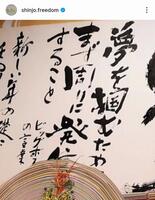 shinjo.freedom
夢を掴むため
まず周りに発信
すること
ビッグボスの言葉
新しい年の